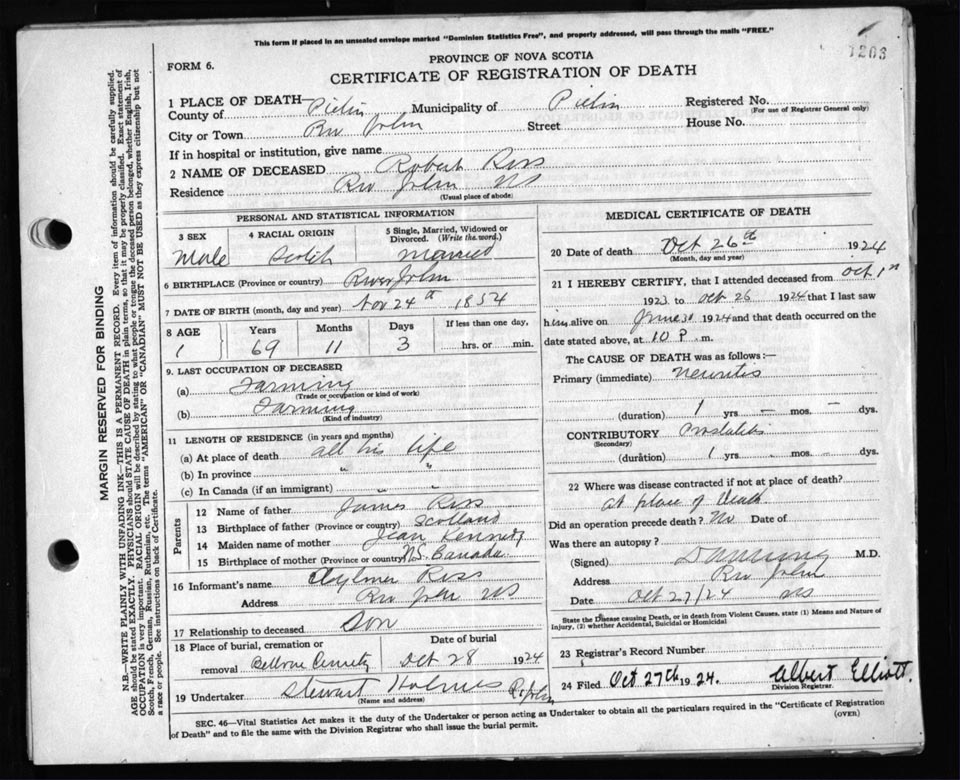 This form if placed in an unsealed envelope marked "Dominion Statistics Free", and properly addressed, will pass through the mails "FREE."
1203
FORM 6.
PROVINCE OF NOVA SCOTIA
CERTIFICATE OF REGISTRATION OF DEATH
1 PLACE OF DEATH—
County of Municipality of Registered No.
(For use of Registrar General only)
City or Town Riv John Street House No.
If in hospital or institution, give name
2 NAME OF DECEASED Robert Ross
Residence Riv John NS
(Usual place of abode)
PERSONAL AND STATISTICAL INFORMATION
3 SEX 4 RACIAL ORIGIN 5 Single, Married, Widowed or Divorced. (Write the word.)
Male Scotch Married
6 BIRTHPLACE (Province or country) River John
7 DATE OF BIRTH (month, day and year) Nov 24th 1854
8 AGE Years Months Days If less than one day,
1 69 11 3 hrs. or min.
9. LAST OCCUPATION OF DECEASED
(a) Farming
(Trade or occupation or kind of work)
(b) Farming
(Kind of industry)
11 LENGTH OF RESIDENCE (in years and months)
(a) At place of death all his life
(b) In province " "
(c) In Canada (if an immigrant) " "
Parents
12 Name of father James Ross
13 Birthplace of father (Province or country) Scotland
14 Maiden name of mother Jean
15 Birthplace of mother (Province or country) NS. Canada
16 Informant's name Aylmer Ross
Address Riv John NS
17 Relationship to deceased Son
18 Place of burial, cremation or removal Date of burial
Oct 28 1924
19 Undertaker Stewart Holmes R. John
(Name and address)
MEDICAL CERTIFICATE OF DEATH
20 Date of death Oct 26th 1924
(Month, day and year)
21 I HEREBY CERTIFY, that I attended deceased from Oct 1st
1923 to Oct 26 1924 that I last saw
him alive on June 1924 and that death occurred on
date stated above, at 10 P. m.
The CAUSE OF DEATH was as follows:—
Primary (immediate) Neuritis
(duration) 1 yrs – mos. – dys.
CONTRIBUTORY Prostatitis
(Secondary)
(duration) 1 yrs. mos. dys.
22 Where was disease contracted if not at place of death?
at place of death
Did an operation precede death? No Date of
Was there an autopsy?
(Signed) M.D.
Address Riv John
Date Oct 27/24 NS
State the Disease causing Death, or in death from Violent Causes, state (1) Means and Nature of
Injury, (2) whether Accidental, Suicidal or Homicidal
23 Registrar's Record Number
24 Filed Oct 27th 1924. Albert Elliott.
Division Registrar.
SEC. 46—Vital Statistics Act makes it the duty of the Undertaker or person acting as Undertaker to obtain all the particulars required in the "Certificate of Registration
of Death" and to file the same with the Division Registrar who shall issue the burial permit.
(OVER)
MARGIN RESERVED FOR BINDING
N.B.—WRITE PLAINLY WITH UNFADING INK—THIS IS A PERMANENT RECORD. Every item of information should be carefully supplied.
AGE should be stated EXACTLY. PHYSICIANS should STATE CAUSE OF DEATH in plain terms, so that it may be properly classified. Exact statement of
OCCUPATION is very important. RACIAL ORIGIN will be described by stating to what people or tongue the deceased person belonged, whether English, Irish,
Scotch, French, German, Russian, Ruthenian, etc. The terms "AMERICAN" or "CANADIAN" MUST NOT BE USED as they express citizenship but not
a race or people. See instructions on back of Certificate.